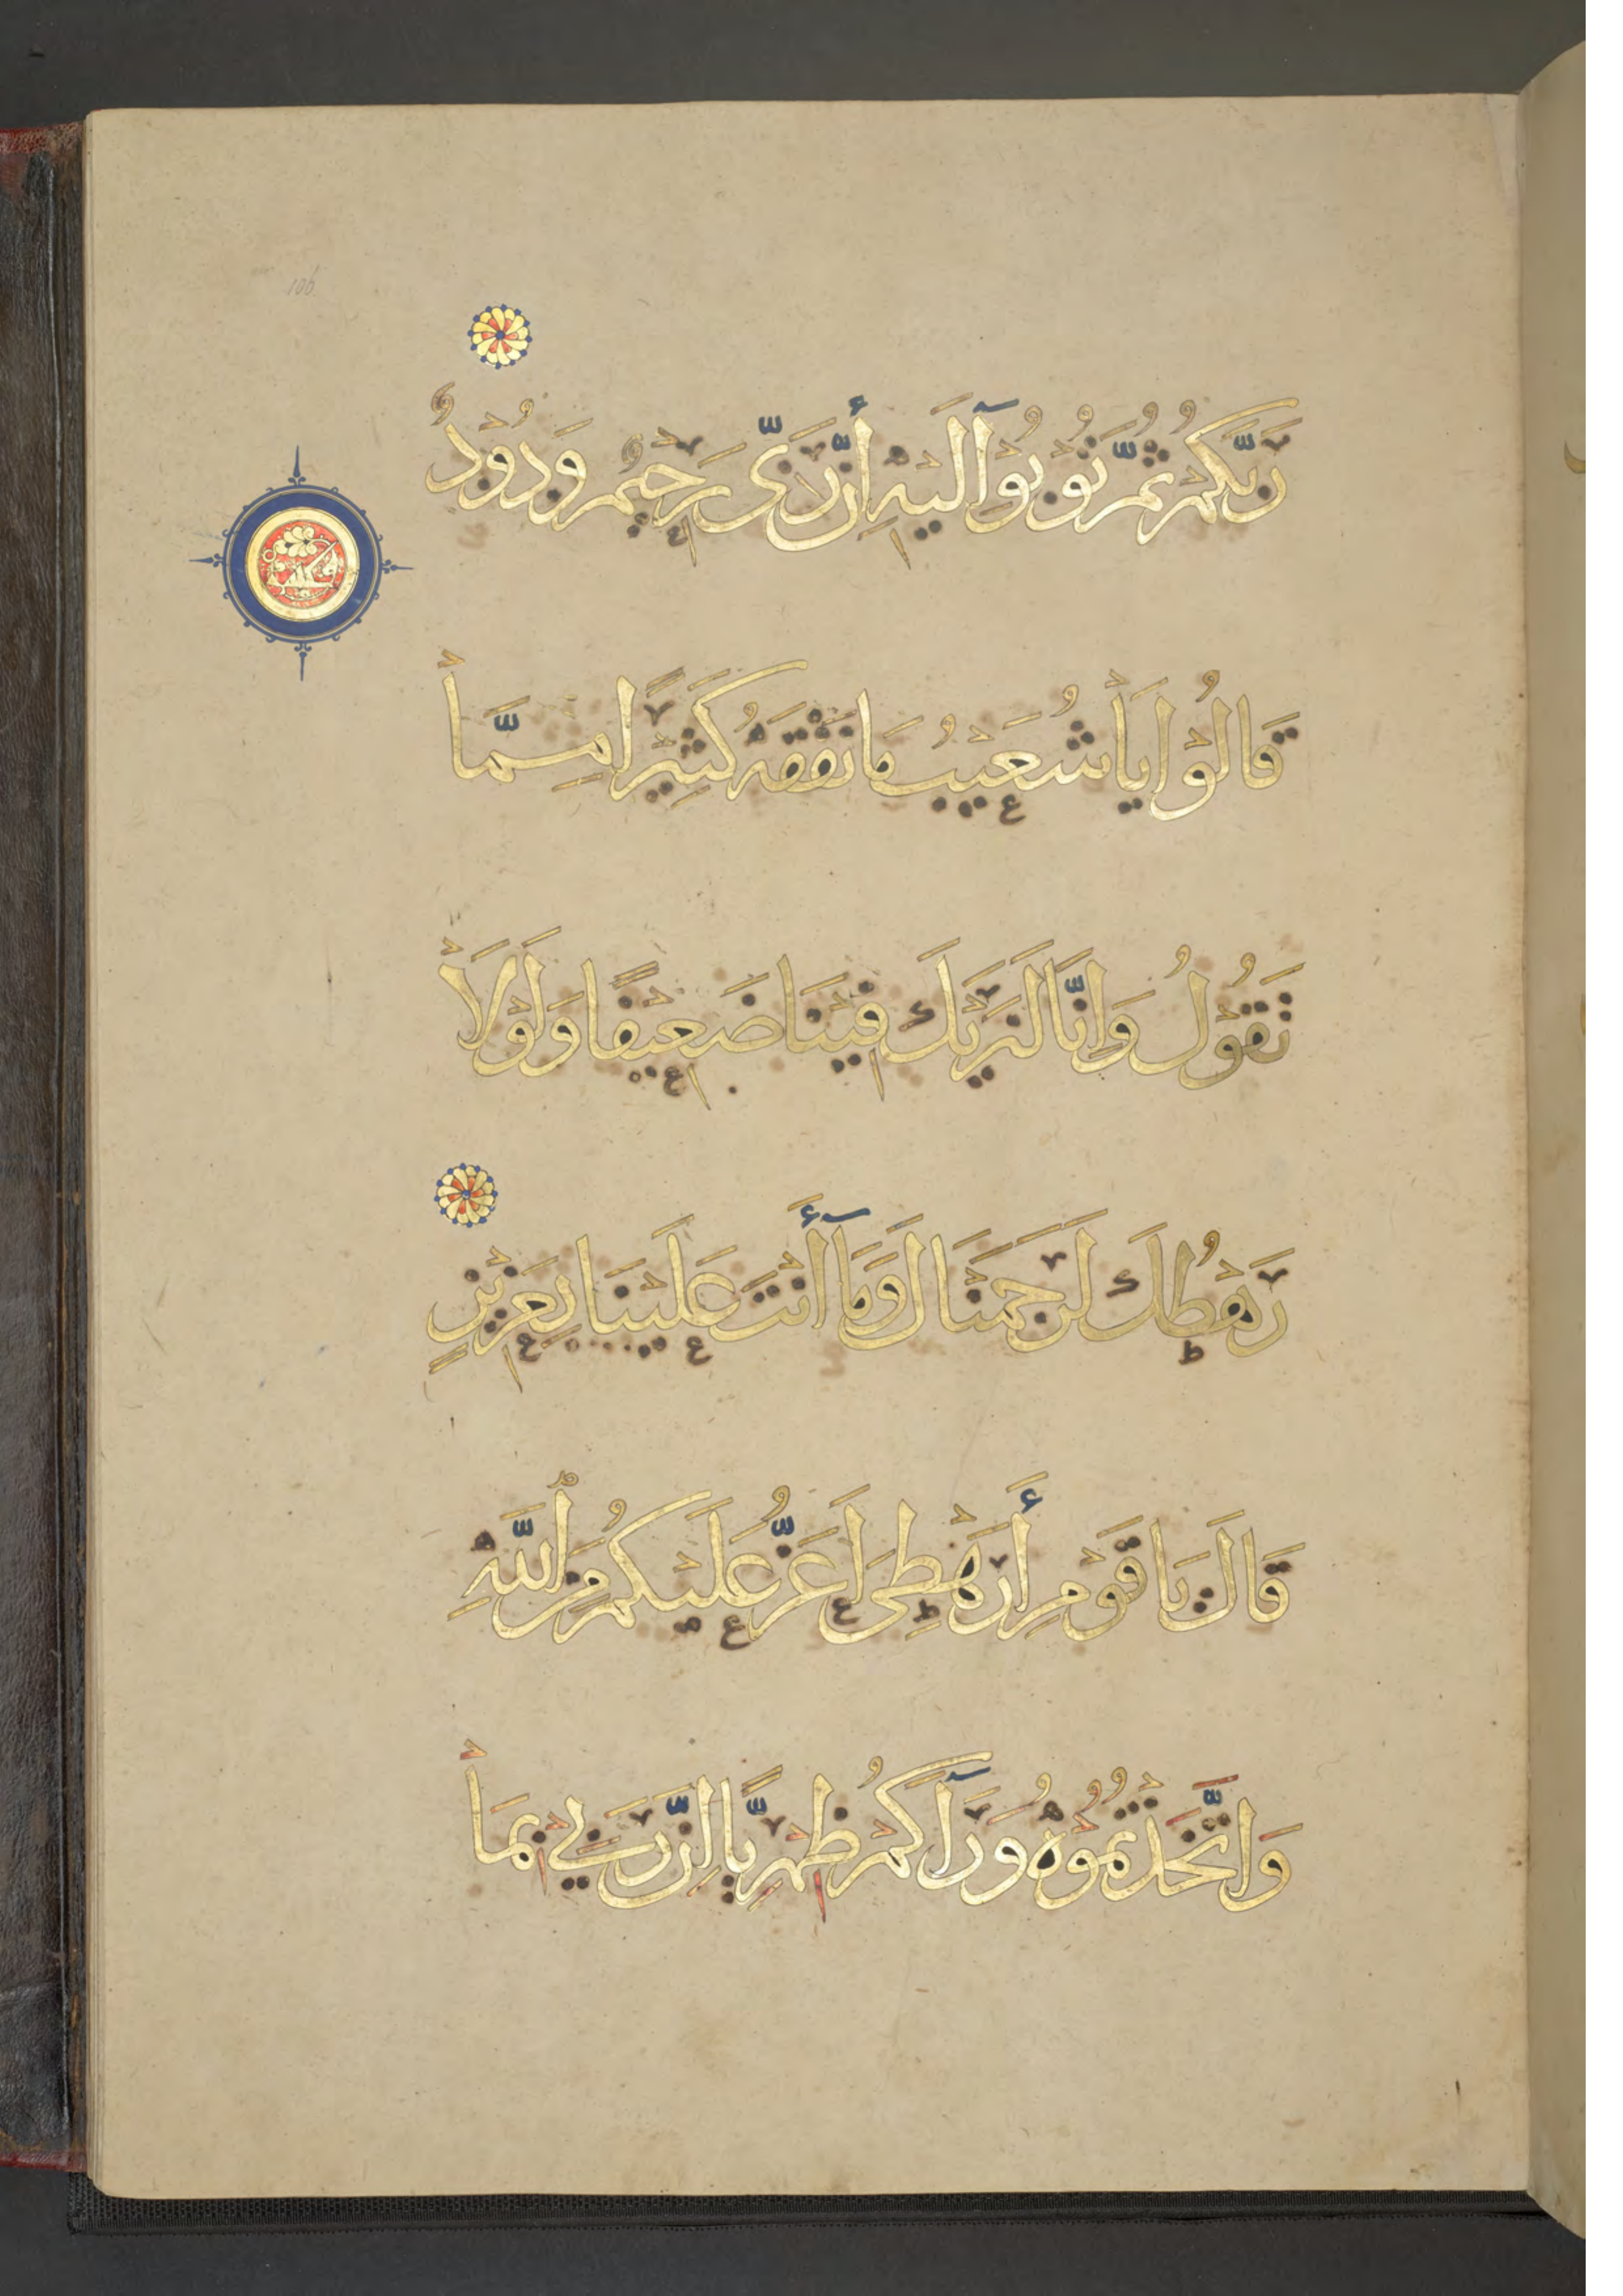 106
رَبَّكُمْ ثُمَّ تُوبُوْآ اِلَيْهِ أِنَّ رَبّى رَحِيْمٌ وَدُوْدٌ
قَالُوْا يَاْشُعَيْبُ مَا نَفْقَهُ كَثِيْرًا مِمَّاْ
تَقُوْلُ وَاِنَّا لَنَرَيْكَ فِيْنَا ضَعِيْفًا وَلَوْلَاْ
رَهْطُكَ لَرَجَمْنَاكَ وَمَآ أَنْتَ عَلَيْنَا بِعَزِيْزٍ
قَالَ يَا قَوْمِ أَرَهْطِى اَعَزُّ عَلَيْكُمْ مِنَ اللّٰهِ
وَاتَّخَذْتُمُوْهُ وَرَآكُمْ ظِهْرِيًّا اِنَّ رَبِّيْ بِمَاْ